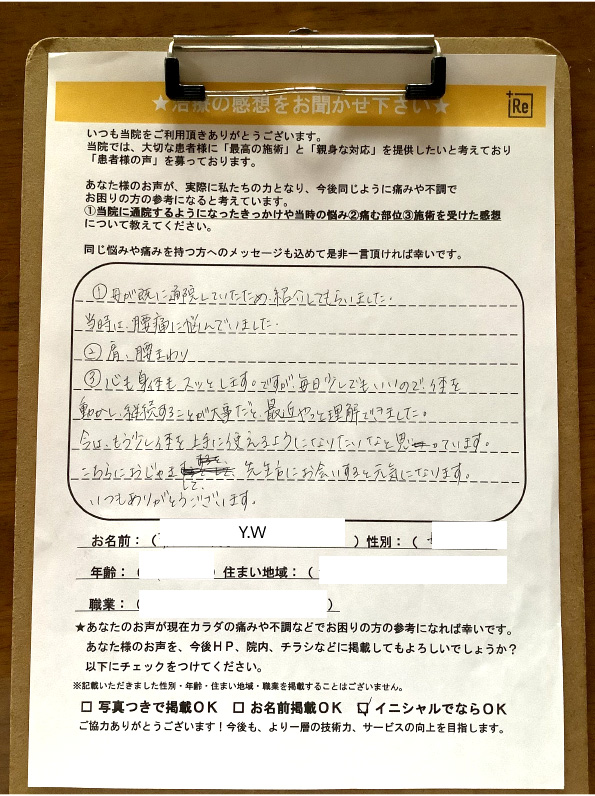 ★治療の感想をお聞かせ下さい★
+Re
いつも当院をご利用頂きありがとうございます。
当院では、大切な患者様に「最高の施術」と「親身な対応」を提供したいと考えており
「患者様の声」を募っております。
あなた様のお声が、実際に私たちの力となり、今後同じように痛みや不調で
お困りの方の参考になると考えています。
①当院に通院するようになったきっかけや当時の悩み②痛む部位③施術を受けた感想
について教えてください。
同じ悩みや痛みを持つ方へのメッセージも込めて是非一言頂ければ幸いです。
①母が既に通院していたため、紹介してもらいました。
当時は、腰痛に悩んでいました。
②肩、腰まわり
③心も身体もスッとします。ですが、毎日少しでもいいので、体を
動かし、継続することが大事だと、最近やっと理解できました。
今は、もう少し体を上手に使えるようになりたいなと思っています。
こちらにおじゃまして、先生方にお会いすると元気になります。
いつもありがとうございます。
お名前：（ Y.W ）性別：（
年齢：（ ）住まい地域：（
職業：（ ）
★あなたのお声が現在カラダの痛みや不調などでお困りの方の参考になれば幸いです。
あなた様のお声を、今後ＨＰ、院内、チラシなどに掲載してもよろしいでしょうか？
以下にチェックをつけてください。
※記載いただきました性別・年齢・住まい地域・職業を掲載することはございません。
□ 写真つきで掲載ＯＫ □ お名前掲載ＯＫ ☑ イニシャルでならＯＫ
ご協力ありがとうございます！今後も、より一層の技術力、サービスの向上を目指します。